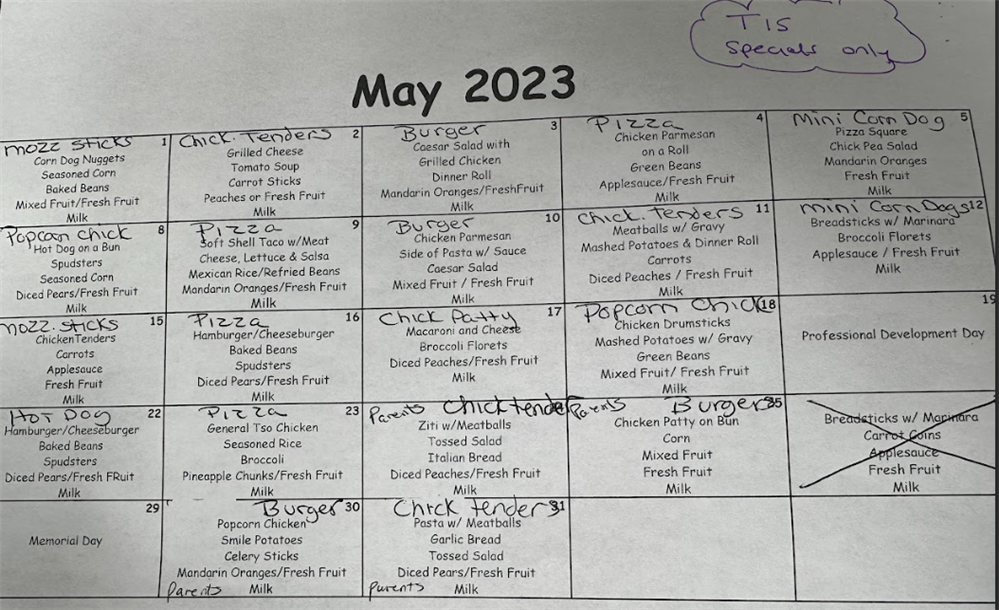 TIS
Specials only
May 2023
mozz sticks 1
Corn Dog Nuggets
Seasoned Corn
Baked Beans
Mixed Fruit/Fresh Fruit
Milk
Chick. Tenders 2
Grilled Cheese
Tomato Soup
Carrot Sticks
Peaches or Fresh Fruit
Milk
Burger 3
Caesar Salad with
Grilled Chicken
Dinner Roll
Mandarin Oranges/FreshFruit
Milk
Pizza 4
Chicken Parmesan
on a Roll
Green Beans
Applesauce/Fresh Fruit
Milk
Mini Corn Dog 5
Pizza Square
Chick Pea Salad
Mandarin Oranges
Fresh Fruit
Milk
Popcorn chick 8
Hot Dog on a Bun
Spudsters
Seasoned Corn
Diced Pears/Fresh Fruit
Milk
Pizza 9
Soft Shell Taco w/Meat
Cheese, Lettuce & Salsa
Mexican Rice/Refried Beans
Mandarin Oranges/Fresh Fruit
Milk
Burger 10
Chicken Parmesan
Side of Pasta w/ Sauce
Caesar Salad
Mixed Fruit / Fresh Fruit
Milk
Chick. tenders 11
Meatballs w/ Gravy
Mashed Potatoes & Dinner Roll
Carrots
Diced Peaches / Fresh Fruit
Milk
mini Corn Dogs 12
Breadsticks w/ Marinara
Broccoli Florets
Applesauce / Fresh Fruit
Milk
mozz. sticks 15
ChickenTenders
Carrots
Applesauce
Fresh Fruit
Milk
Pizza 16
Hamburger/Cheeseburger
Baked Beans
Spudsters
Diced Pears/Fresh Fruit
Milk
Chick Patty 17
Macaroni and Cheese
Broccoli Florets
Diced Peaches/Fresh Fruit
Milk
Popcorn Chick 18
Chicken Drumsticks
Mashed Potatoes w/ Gravy
Green Beans
Mixed Fruit/ Fresh Fruit
Milk
19
Professional Development Day
Hot Dog 22
Hamburger/Cheeseburger
Baked Beans
Spudsters
Diced Pears/Fresh FRuit
Milk
Pizza 23
General Tso Chicken
Seasoned Rice
Broccoli
Pineapple Chunks/Fresh Fruit
Milk
Parents Chick tender
Ziti w/Meatballs
Tossed Salad
Italian Bread
Diced Peaches/Fresh Fruit
Milk
Parents Burger 25
Chicken Patty on Bun
Corn
Mixed Fruit
Fresh Fruit
Milk
Breadsticks w/ Marinara
Carrot Coins
Applesauce
Fresh Fruit
Milk
29
Memorial Day
Burger 30
Popcorn Chicken
Smile Potatoes
Celery Sticks
Mandarin Oranges/Fresh Fruit
Parents Milk
Chick tenders 31
Pasta w/ Meatballs
Garlic Bread
Tossed Salad
Diced Pears/Fresh Fruit
Parents Milk